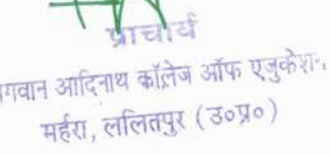 प्राचार्य
गवान आदिनाथ कॉलेज ऑफ एजुकेशन,
महर्रा, ललितपुर (उ०प्र०)